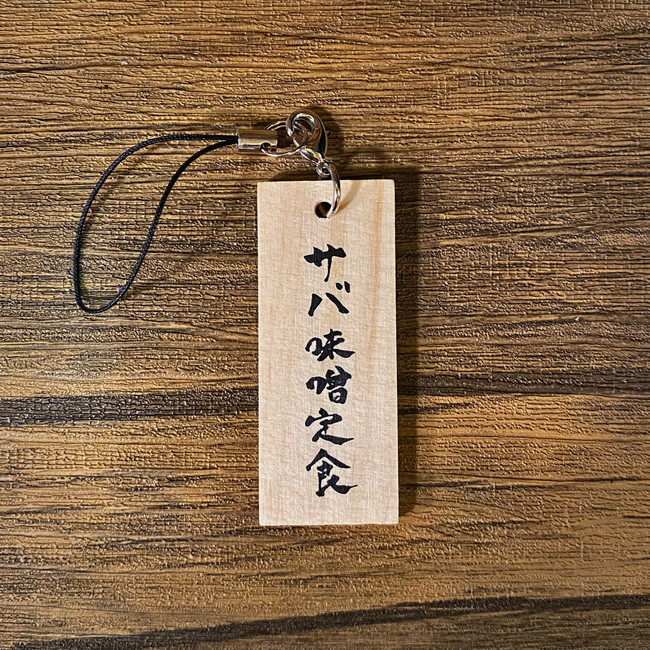 サバ味噌定食